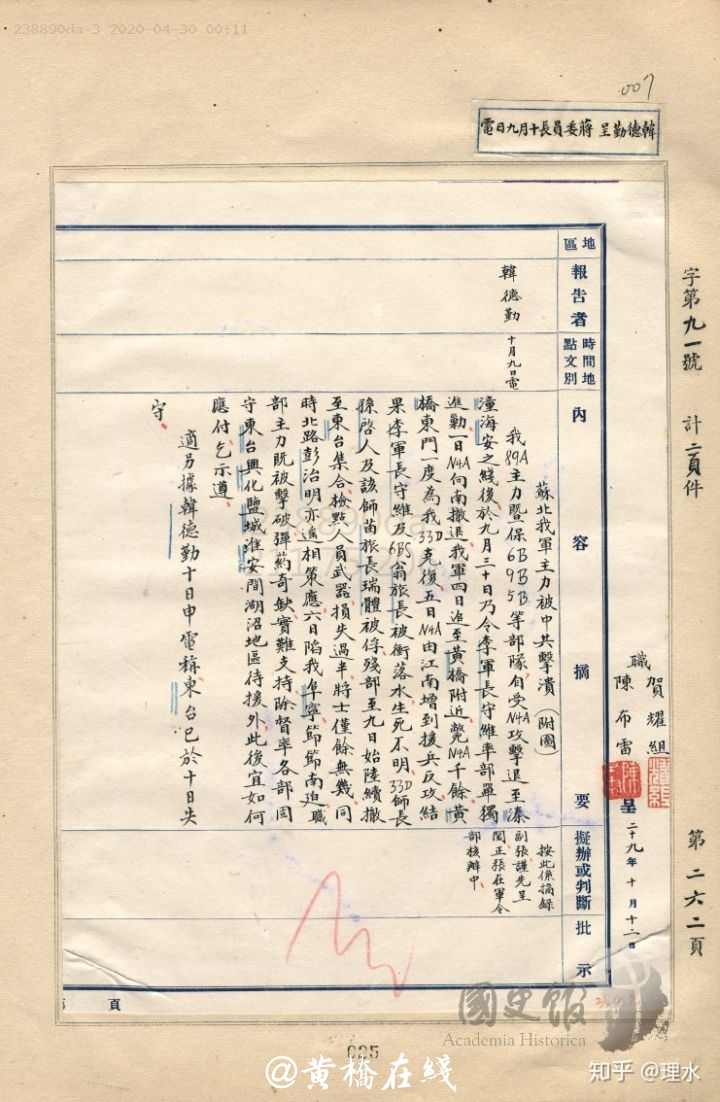 238890da-3 2020-04-30 00:11
007
韓德勤呈蔣委員長十月九日電
字第九一號 計二頁件
第二六二頁
職
賀耀組
陳布雷
呈
二十九年十月十二日
地區
報告者
時間地點文別
內容摘要
擬辦或判斷
批示
韓德勤
十月九日電
蘇北我軍主力被中共擊潰(附圖)
我89A主力暨保6B 9B 5B等部隊自受N4A攻擊退至溱
潼海安之綫後於九月三十日乃令李軍長守維率部單獨
進勦一日N4A向南撤退我軍四日追至黃橋附近斃N4A千餘黃
橋東門一度為我33D克復五日N4A由江南增到援兵反攻結
果李軍長守維及6BS翁旅長被衝落水生死不明33D師長
孫啓人及該師苗旅長瑞體被俘殘部至九日始陸續撤
至東台集合檢點人員武器損失過半將士僅餘無幾同
時北路彭治明亦遙相策應六日陷我阜寧節節南迫職
部主力既被擊破彈藥奇缺實難支持除督率各部固
守東台興化鹽城淮安間湖沼地區待援外此後宜如何
應付乞示遵
適另據韓德勤十日申電稱東台已於十日失
守
按此係摘錄
副張謹先呈
閱正張在軍令
部核辦中
頁
國史館
Academia Historica
025
@黃橋在綫
知乎 @理水